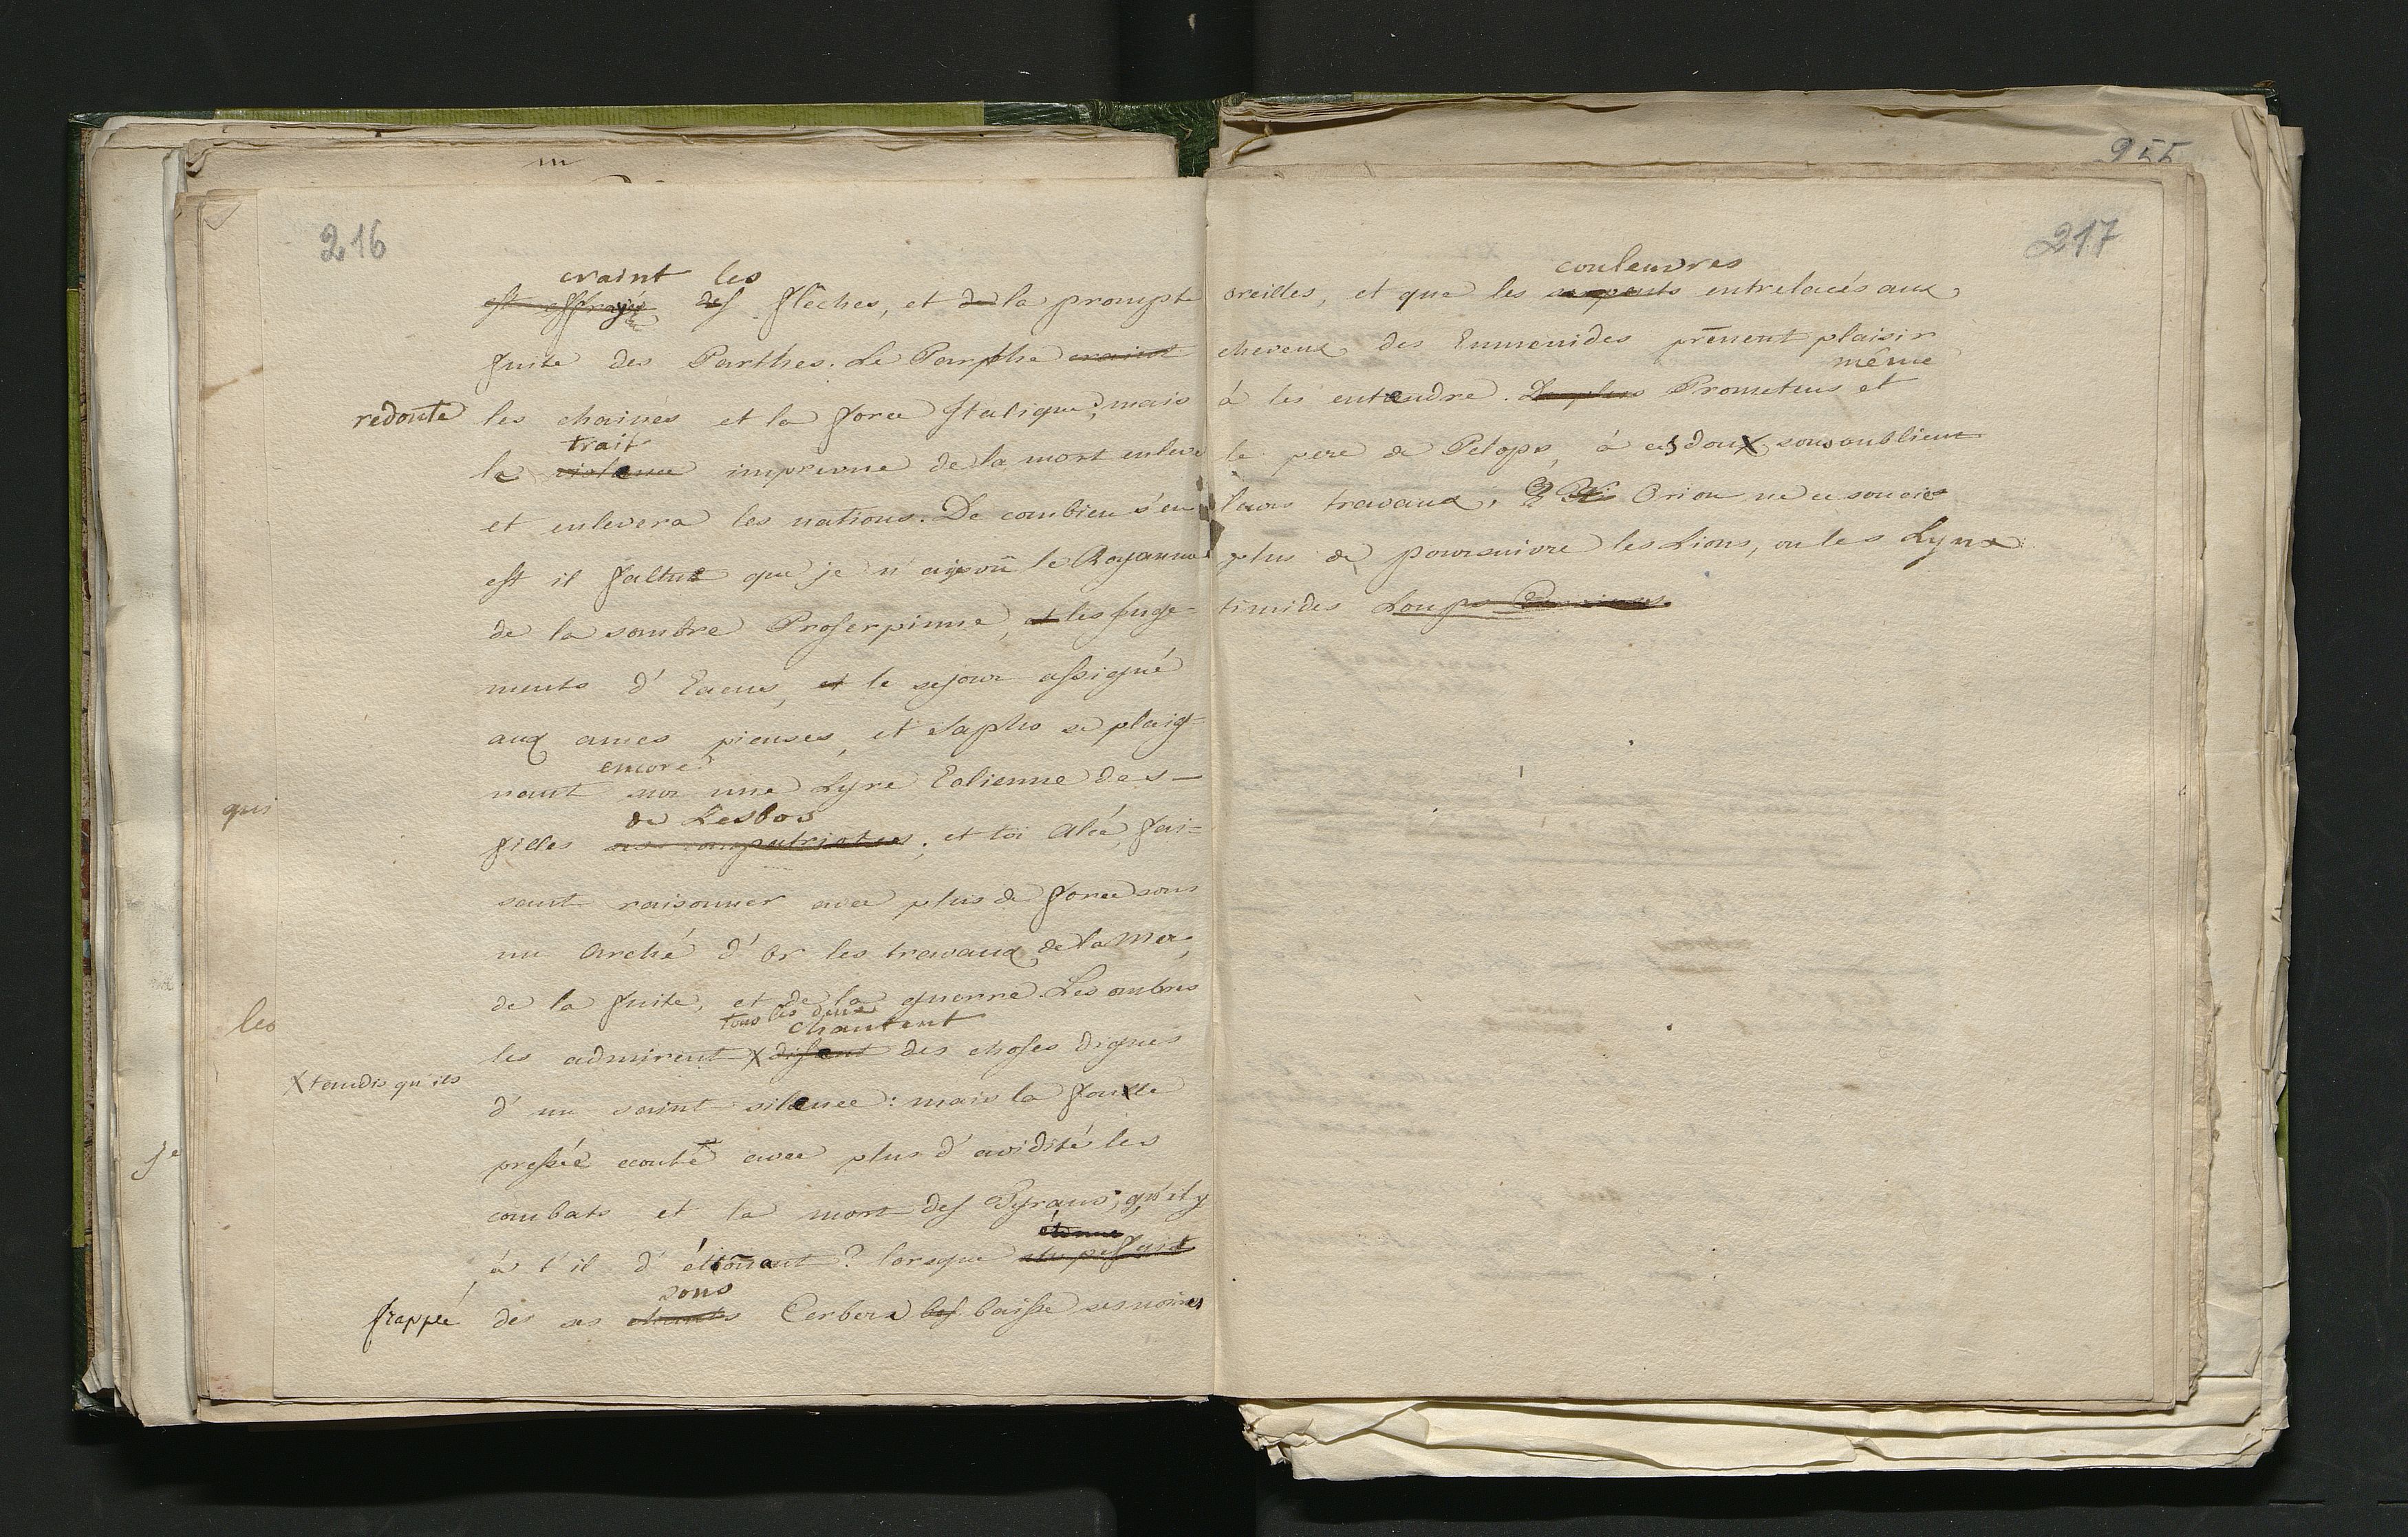 216
craint les
est effrayé des flêches, et de la prompt
fuite des Parthes. Le Parthe craint
redoute les chaines et la force Italique; mais
trait
la violence imprevue de la mort enleve
et enlevera les nations. De combien s'en
est il fallut que je n'ay poũ le Royaume
de la sombre Proserpinne, et les juge-
ments d'Eacus, et le sejour assigné
aux ames pieuses, et Sapho se plaig-
encore
nant sur une Lyre Eolienne des
qui
de Lesbos
filles ses compatriotes; et toi Alcé, fai-
sant raisonner avec plus de force sous
un Arché d'or les travaux de la Mer,
de la fuite, et de la guerre. Les ombres
les
tous les deux
chantent
les admirent X disent des choses dignes
X tandis qu'ils
d'un saint silence: mais la foulle
pressée ecoute avec plus d'avidité les
je
combats et la mort des Tyrans; qu'il y
étonné
à t'il d'étoñant? lorsque stupefait
sons
frappé des ses chants Cerbere les baisse ses noires
955
217
couleuvres
oreilles, et que les serpents entrelacés aux
cheveux des Eumenides prẽnent plaisir
même
à les entendre. Prometeus et
le pere de Pelops, à ces doux sons oublient
leurs travaux, Orion ne ce soucie
plus de poursuivre les Lions, ou les Lynx
timides Loups